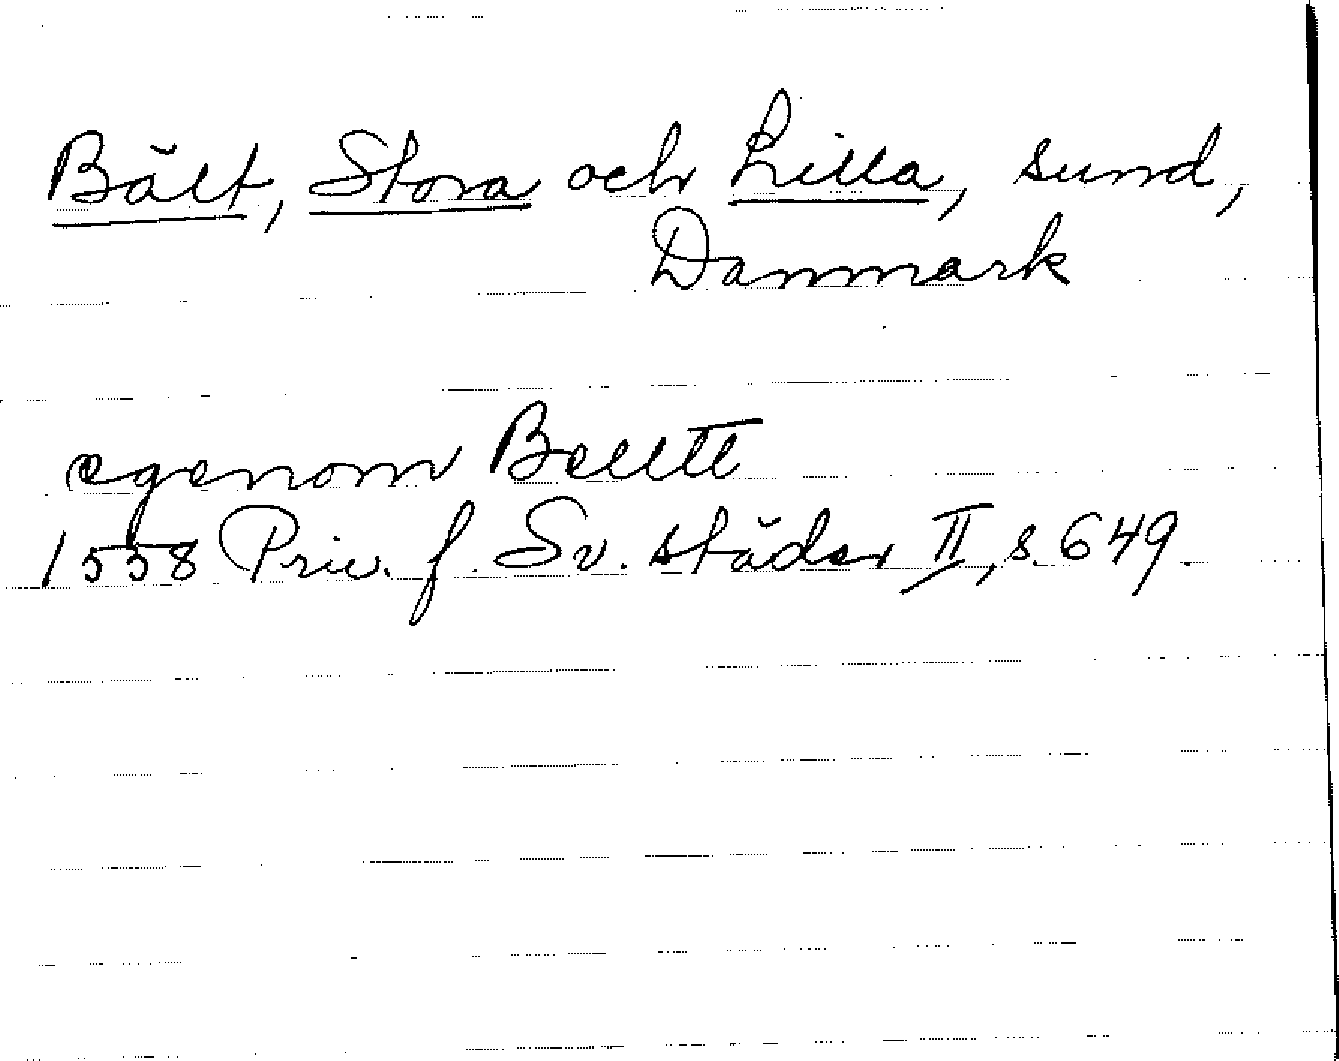 Bält, Stora och Lilla, sund,
Danmark
egenom Belltt
1558 Priv. f. Sv. städer II, s. 649